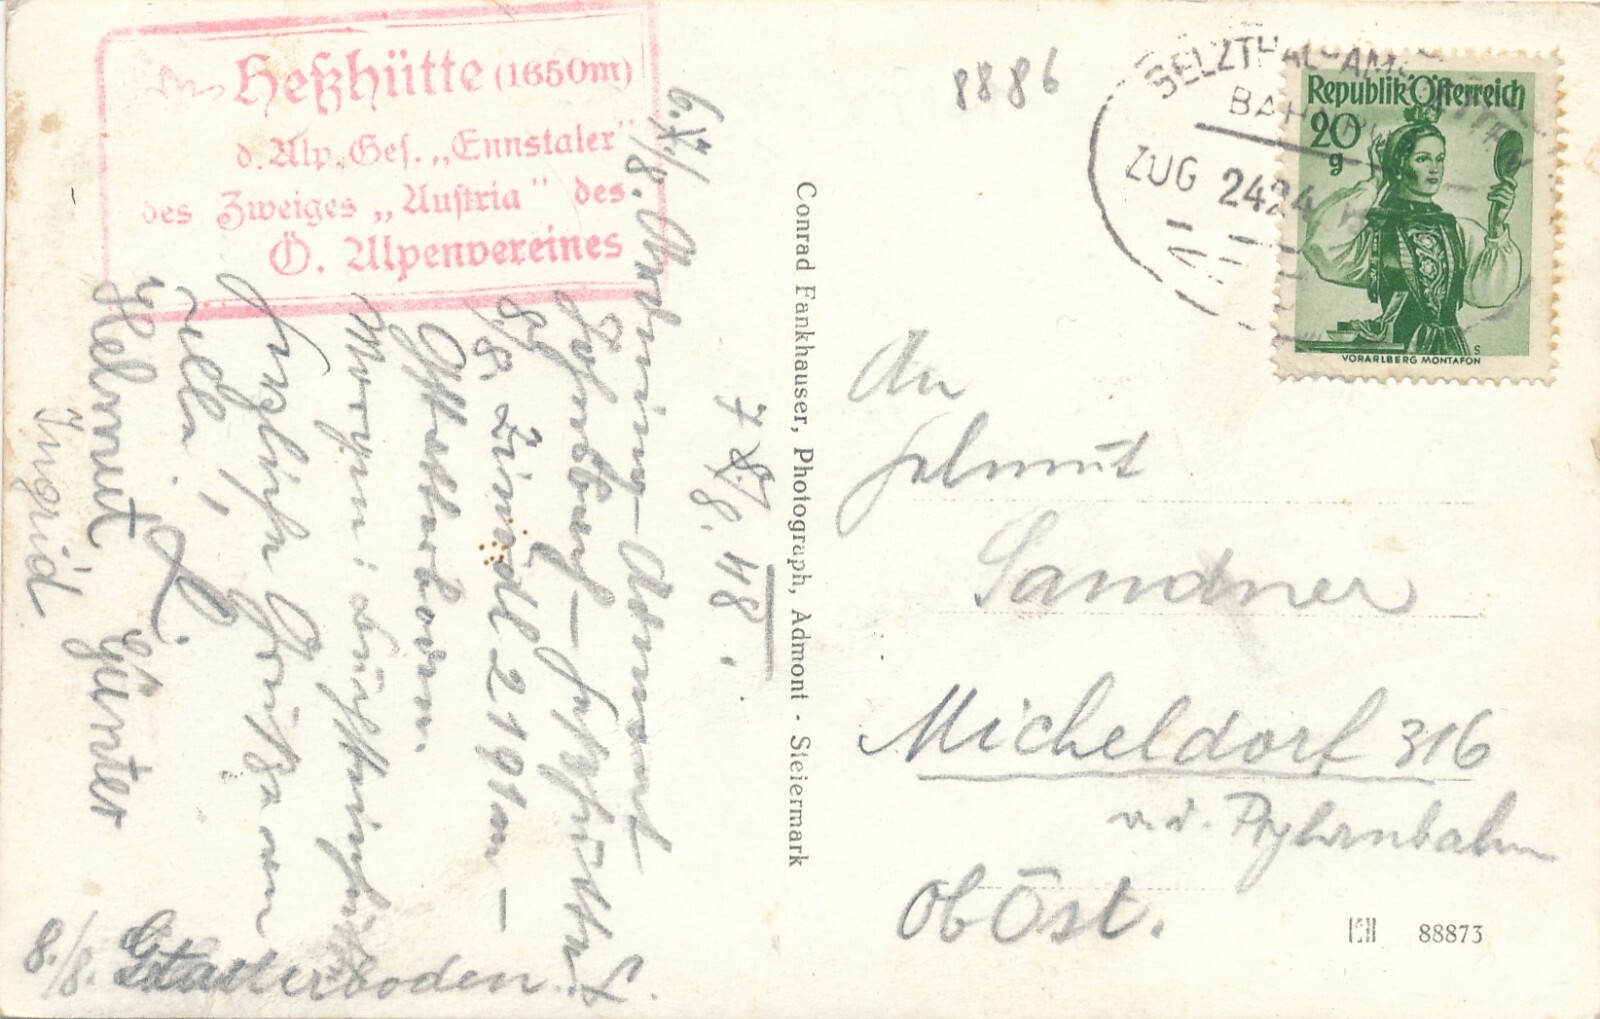 Heßhütte (1650m)
d. Alp. Ges. „Ennstaler"
des Zweiges „Austria" des
Ö. Alpenvereines
8886
SELZTHAL
BAH
ZUG 2424
Republik Österreich
20
g
VORARLBERG MONTAFON
S
/8. Ardning - Admont
Johnsbach - Hesshütte
/8. Zinödl 2191m -
Morgen:
Herzliche Grüße von
Helmut Günter
Ingrid
7 /8. 48.
8./8. Gstatterboden.
Conrad Fankhauser, Photograph, Admont - Steiermark
An
Helmut
Sandner
Micheldorf 316
a. d. Pyhrnbahn
Ob Öst.
88873